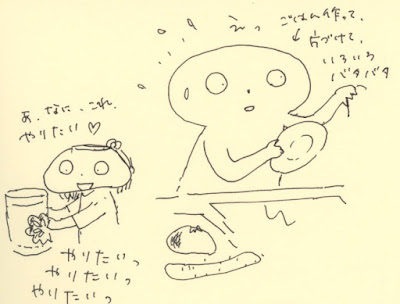 えっ
ごはん作って、
片づけて、
いろいろ
バタバタ
あ、なに、これ、
やりたい♡
やりたいっ
やりたいっ
やりたいっ